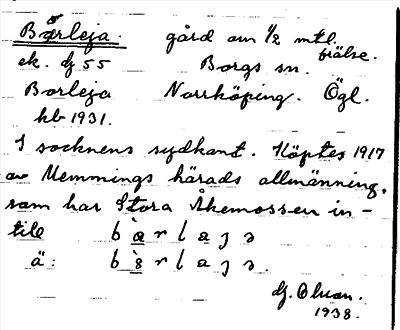 Bårleja. gård om 1/2 mtl.
frälse.
ek. bl 55 Borgs sn.
Borleja Norrköping. Ögl.
hb 1931.
I socknens sydkant. Köptes 1917
av Memmings härads allmänning,
som har Stora Åkemossen in-
till b a r l a j ə
ä: b r l a j ə.
G. Olsson.
1938.